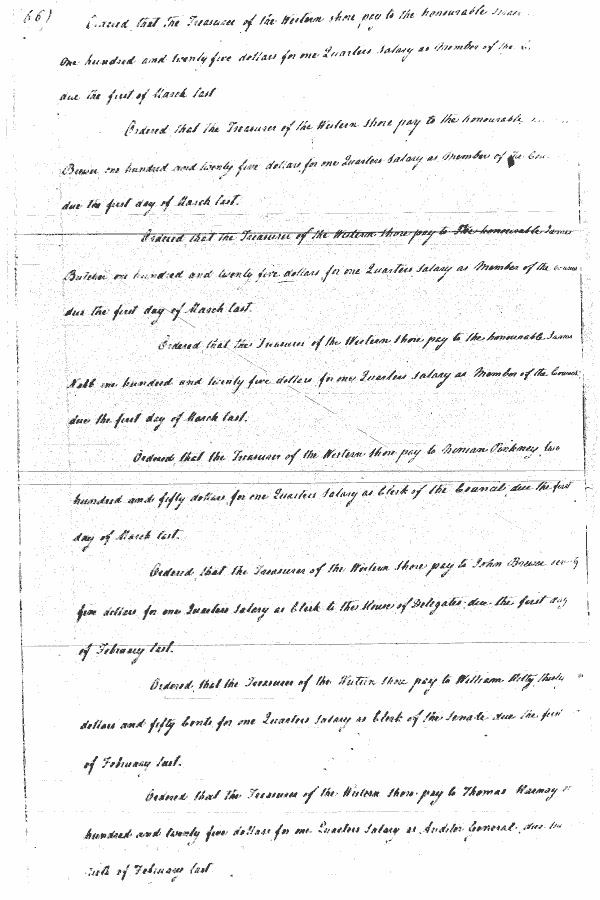 (66) Ordered that the Treasurer of the Western shore pay to the honourable
One hundred and twenty five dollars for one Quarters Salary as Member of the
due the first of March last
Ordered that the Treasurer of the Western shore pay to the honourable
Brewer one hundred and twenty five dollars for one Quarters Salary as Member of the Cou
due the first day of March last.
Ordered that the Treasurer of the Western shore pay to the honourable James
Butcher one hundred and twenty five dollars for one Quarters Salary as Member of the Counc
due the first day of March last.
Ordered that the Treasurer of the Western shore pay to the honourable James
Nabb one hundred and twenty five dollars for one Quarters Salary as Member of the Council
due the first day of March last.
Ordered that the Treasurer of the Western shore pay to Ninian Pinkney two
hundred and fifty dollars for one Quarters Salary as Clerk of the Council due the first
day of March last.
Ordered that the Treasurer of the Western shore pay to John Brewer
five dollars for one Quarters Salary as Clerk to the House of Delegates due the first day
of February last.
Ordered that the Treasurer of the Western shore pay to William Kilty thirty
dollars and fifty Cents for one Quarters Salary as Clerk of the Senate due the first
of February last.
Ordered that the Treasurer of the Western shore pay to Thomas Karney
hundred and twenty five dollars for one Quarters Salary as Auditor General due the
of February last